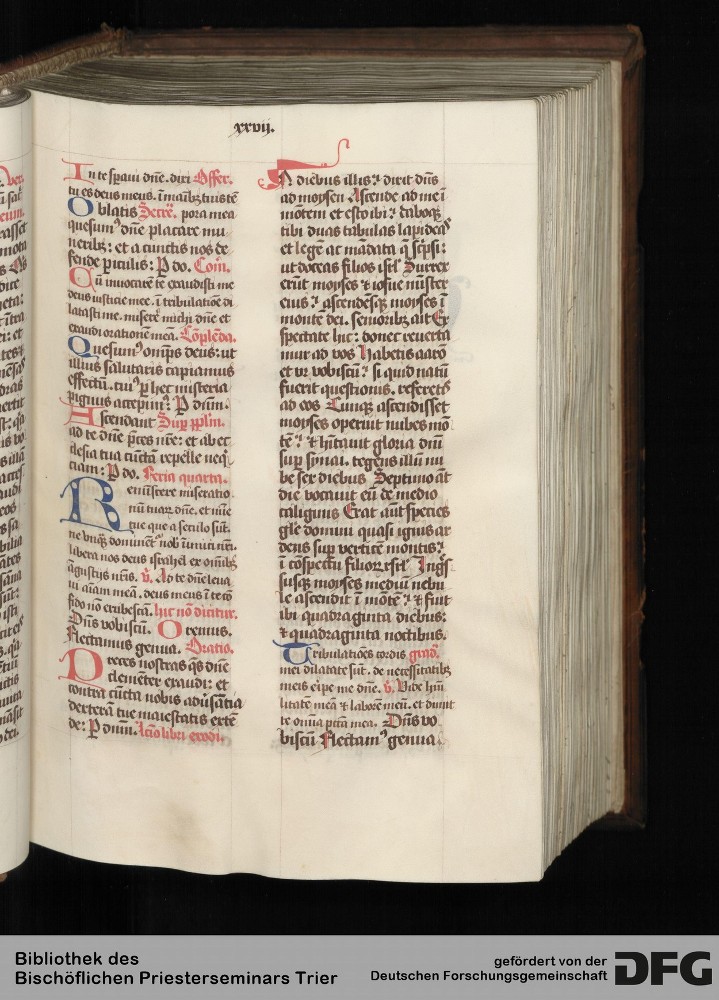 xxvij.
In te sꝑaui dn̄e. dixi Offer.
tu es deus meus. ī manibꝫ tuis tē
Oblatis Secre͂. pora mea
quesumꝰ dn̄e placare mu
neribꝫ: et a cunctis nos de
fende ꝑiculis: P do. Com̄.
Cū inuocarē te exaudisti me
deus iusticie mee. ī tribulatiōe di
latasti me. miserē michi dn̄e et
exaudi orationē meā. Cōplēda.
Quesumꝰ om̄ps deus: ut
illius salutaris capiamus
effectū. cuiꝰ ꝑ hec misteria
pignus accepimꝰ: P dn̄m.
Ascendant Suꝑ pp̄lm̄.
ad te dn̄e p̄ces nr̄e: et ab ec
clesia tua cūctā repelle neq̄
ciam: P do. Feria quarta.
Reminiscere miseratio
nū tuarꝫ dn̄e. et mīe
tue que a seculo sūt.
ne vnqꝫ dominent̄ nob̄ inimici nr̄i.
libera nos deus israhel ex om̄ibꝫ
āgustijs nr̄is. v̄. Ad te dn̄e leua
ui aīam meā. deus meus ī te cō
fido nō erubescā. hic nō dicitur.
Dn̄s vobiscū. Oremus.
Flectamus genua. Oratio.
Preces nostras qs̄ dn̄e
clementer exaudi: et
contra cūcta nobis aduersātia
dexterā tue maiestatis extē
de: P dn̄m. Lc̄io libri exodi.
In diebus illis: dixit dn̄s
ad moysen Ascende ad me ī
mōtem et esto ibi: daboqꝫ
tibi duas tabulas lapideas
et legē ac mādata q̄ scͥpsi:
ut doceas filios isrl̄ Surrex
erūt moyses et iosue mīster
eius: ascendēsqꝫ moyses ī
monte dei. senioribꝫ ait Ex
spectate hic: donec reuerta
mur ad vos Habetis aarō
et vr̄ vobiscū: si quid natū
fuerit questionis. referetis
ad eos Cumqꝫ ascendisset
moyses operuit nubes mō
tē: et hītauit gloria dn̄i
suꝑ synai. tegens illū nu
be sex diebus Septimo āt
die vocauit eū de medio
caliginis Erat aūt species
gle domini quasi ignis ar
dens suꝑ verticē montis:
ī cōspectu filiorꝫ isrl̄ Ingͣs
susqꝫ moyses mediū nebu
le ascendit ī mōtē: et fuit
ibi quadraginta diebus:
et quadraginta noctibus.
Tribulatiōes cordis grad̄.
mei dilatate sūt. de necessitatibꝫ
meis eripe me dn̄e. v̄. Vide hūi
litatē meā et laborē meū. et dimit
te omīa pctā mea. Dn̄s vo
biscū Flectamꝰ genua.
Bibliothek des
Bischöflichen Priesterseminars Trier
gefördert von der
Deutschen Forschungsgemeinschaft
DFG